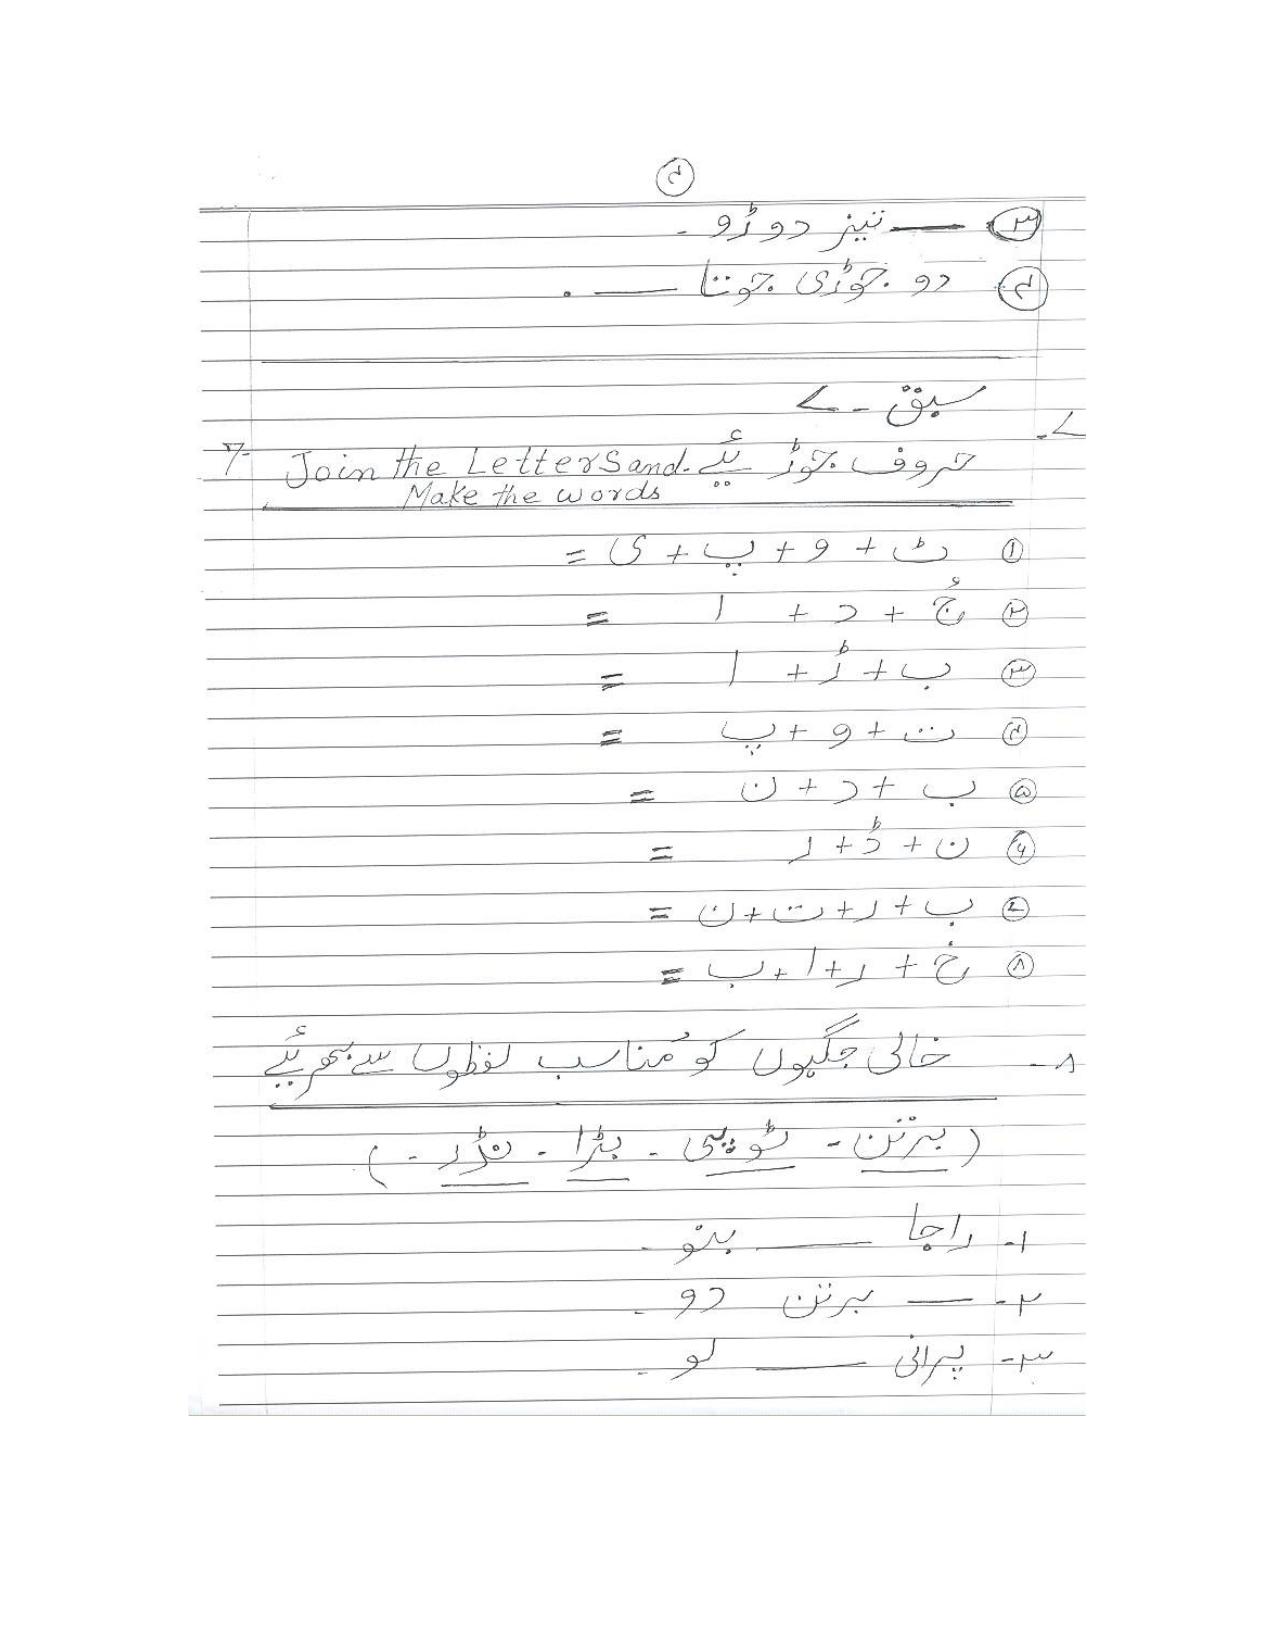 ۴
۳ — تیز دوڑو ۔
۴ دو جوڑی جوتا — .
سبق - ۷
۷- حروف جوڑیئے .Join the Letters and 7-
Make the words
۱ ٹ + و + پ + ی =
۲ جُ + د + ا =
۳ ب + ڑ + ا =
۴ ت + و + پ =
۵ ب + د + ن =
۶ ن + ڈ + ر =
۷ ب + ر + ت + ن =
۸ خ + ر + ا + ب =
۸- خالی جگہوں کو مُناسب لفظوں سے بھریئے
(برتن - ٹوپی - بڑا - نڈر -)
۱- راجا — بنو ۔
۲- — برتن دو ۔
۳- پرانی — لو ۔